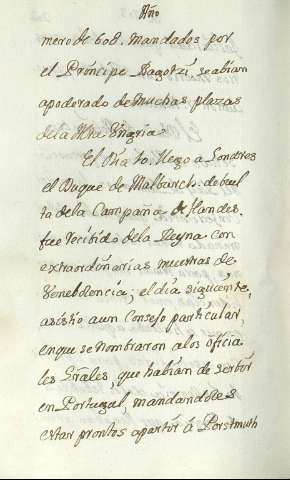 Año
mero de 608. mandados por
el Príncipe Ragotzi, se abian
apoderado de muchas plazas
de la Alta Ungria.
El Dia 10. llego a Londres
el Duque de Malburch. debuel
ta dela Campaña de flandes.
fue recibido dela Reyna con
extraordinarias muestras de
Venebolencia; el dia siguiente,
asistio aun Consejo particular,
enque se nombraron alos oficia
les Grãles, que habian de serbir
en Portugal, mandandoles
estar prontos apartir á Porstmuth